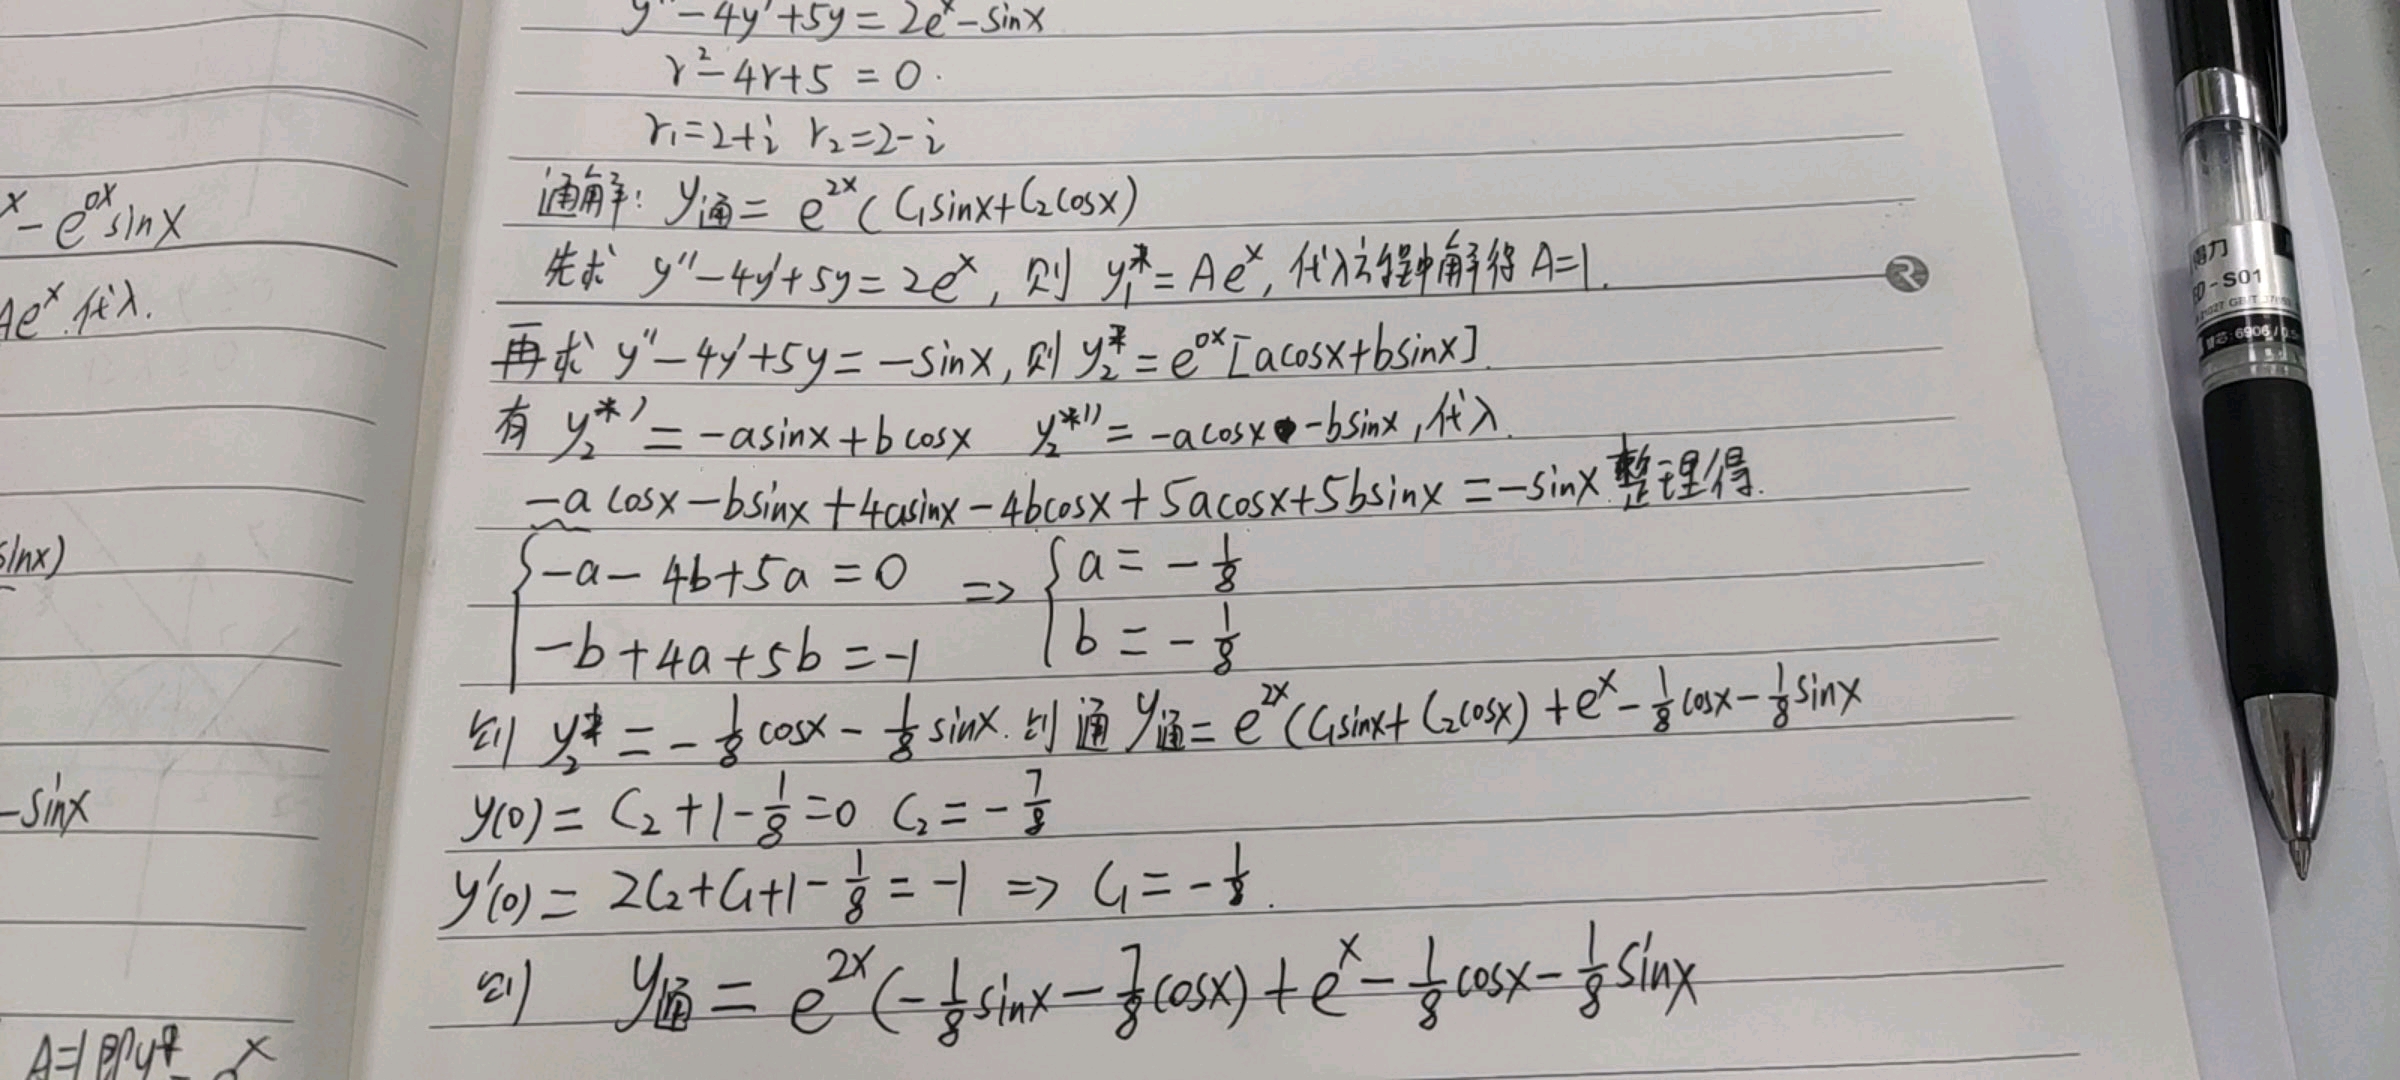 x - e^{0x} sinx
Ae^x 代入.
sinx)
-sinx
A=1 即y*
y'' - 4y' + 5y = 2e^x - sinx
r² - 4r + 5 = 0.
r₁ = 2+i r₂ = 2-i
通解: y通 = e^{2x} (C₁sinx + C₂cosx)
先求 y'' - 4y' + 5y = 2e^x, 则 y₁* = Ae^x, 代入方程中解得 A=1.
再求 y'' - 4y' + 5y = -sinx, 则 y₂* = e^{0x}[acosx + bsinx].
有 y₂*' = -asinx + bcosx y₂*'' = -acosx - bsinx, 代入.
-a cosx - bsinx + 4asinx - 4bcosx + 5acosx + 5bsinx = -sinx 整理得.
{ -a - 4b + 5a = 0 => { a = -1/8
-b + 4a + 5b = -1 b = -1/8
则 y₂* = -1/8 cosx - 1/8 sinx. 则 通 y通 = e^{2x}(C₁sinx + C₂cosx) + e^x - 1/8 cosx - 1/8 sinx
y(0) = C₂ + 1 - 1/8 = 0 C₂ = -7/8
y'(0) = 2C₂ + C₁ + 1 - 1/8 = -1 => C₁ = -1/8.
则 y通 = e^{2x}(-1/8 sinx - 7/8 cosx) + e^x - 1/8 cosx - 1/8 sinx
R
得力
S01
6906